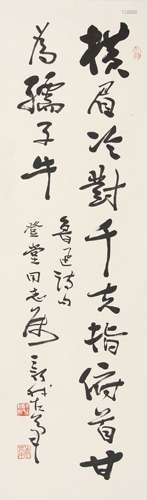 橫眉冷對千夫指俯首甘
為孺子牛
魯迅詩句
堂同志屬